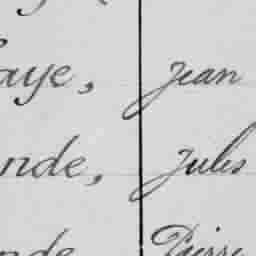 aye, Jean
nde, Jules
nde Pierre